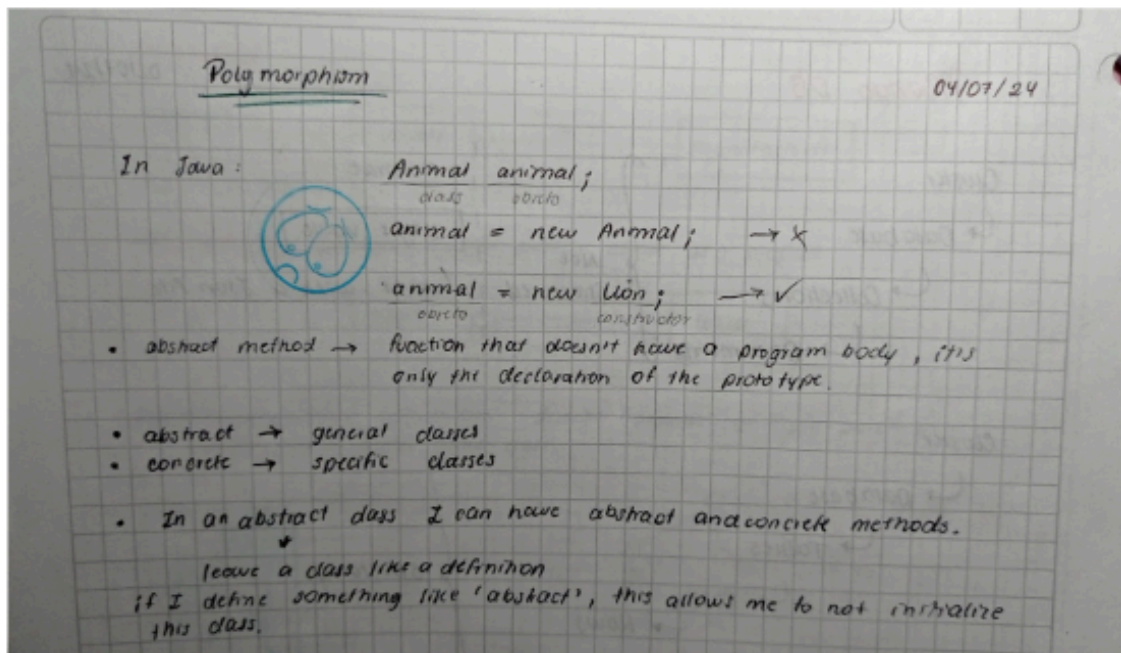 Polymorphism
04/07/24
In Java:
Animal animal;
class objeto
animal = new Animal; → x
animal = new León; → ✓
objeto constructor
• abstract method → function that doesn't have a program body, it's
only the declaration of the prototype.
• abstract → general classes
• concrete → specific classes
• In an abstract class I can have abstract and concrete methods.
leave a class like a definition
if I define something like 'abstract', this allows me to not initialize
this class.